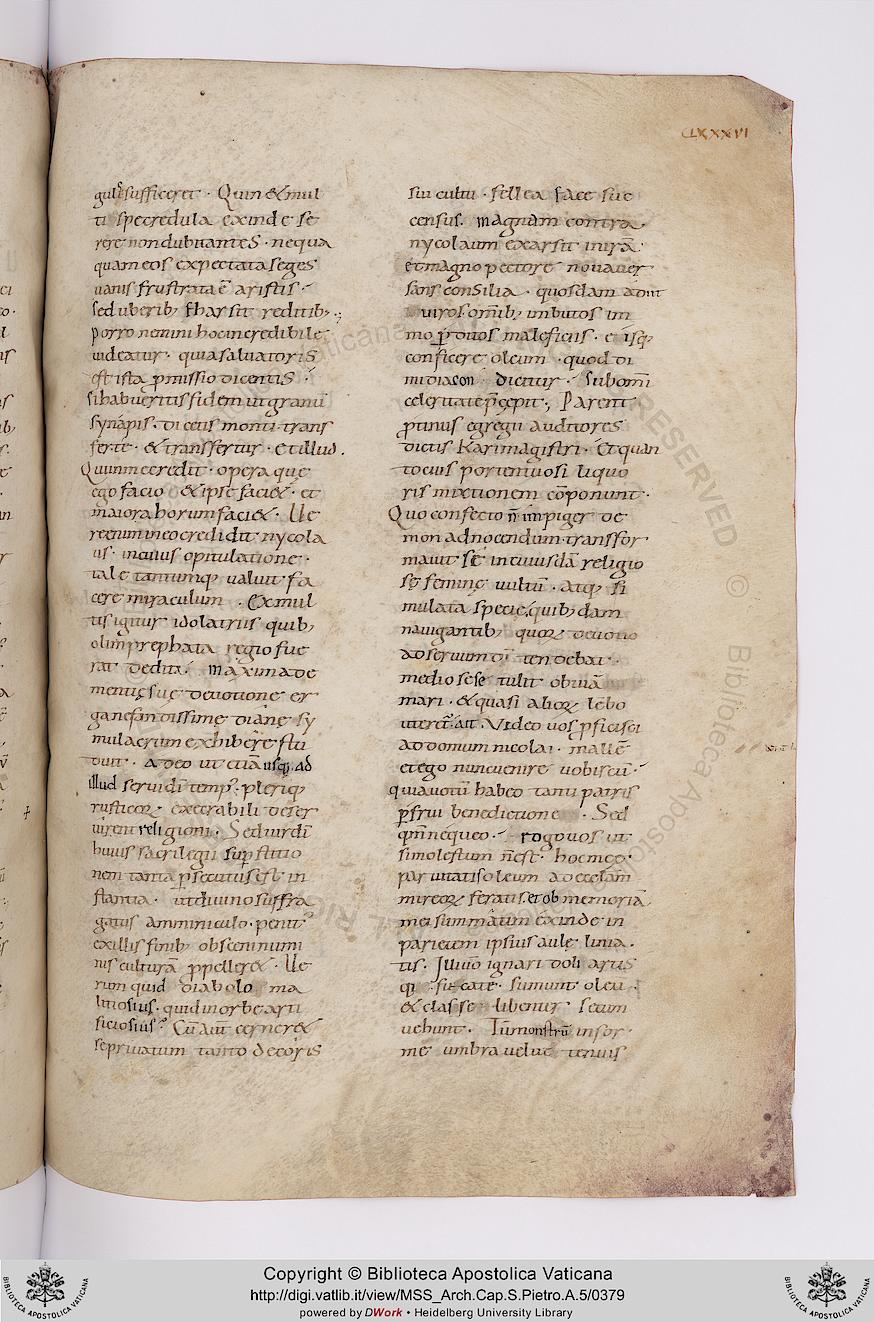 CLXXXVI
gulis sufficeret · Quin & mul
ti spe credula exinde se
rere non dubitantes · nequa
quam eos expectata seges
uanis frustrata ē aristis ·
sed uberib; thar sit redditib;
porro nemini hoc incredibile
uideatur · quia saluatoris
est ista p̄missio dicentis ·
si habueritis fidem ut granū
synapis · dicetis monti trans
ferte · & transfertur · et illud ·
Qui in me credit · opera que
ego facio · & ipse faci& · et
maiora horum faci& · Ue
re enim in eo credidit nycola
us · in cuius opitulatione ·
tale tantumq; ualuit fa
cere miraculum · Ex mul
tis igitur idolatriis quib;
olim prephata regio fue
rat dedita · maxima de
mentię suę deuotione er
ga nefandissimę dianę sy
mulacrum exhibere stu
duit · adeo ut etiā usq; ad
illud seruidi temp' pleriq;
rusticoꝝ execrabili deser
uirent religioni · Sed uir dī
huius sacrilegii sup̄stitio
nem tanta p̄secutus est in
stantia · ut diuino suffra
gatus amminiculo · penit'
ex illis finib; obsceni numi
nis culturā ppeller& · Ue
rum quid diabolo ma
litiosius · quid in orbe arti
ficiosius? Cū aūt cerner&
se priuatum tanto decoris
sui cultu · fellea face sue
census · magnam contra
nycolaum exarsit in irā:
et magno pectore nouauer
sans consilia · quosdam adiit
uiros omīb; imbutos im
mo p̄duos maleficiis · eisq;
conficere oleum · quod di
midiacon dicitur · sub omī
celeritate p̄cepit; Parent
protinus egregii auditores
dictis Kari magistri · Et quan
tocius portentuosi liquo
ris mixtionem cōponunt ·
Quo confecto ñ impiger de
mon ad nocendum transfor
mauit se in cuiusdā religio
sę feminę uultū · atq; si
mulata specie, quib; dam
nauigantib; quoꝝ deuotio
ad seruum dī tendebat ·
medio sese tulit obuiā
mari · & quasi alioꝝ lebo
uteret' ait · Video uos p̄ficisci
ad domum nicolai · mallē
et ego nunc uenire uobiscū ·
quia uotū habeo tanti patris
p̄frui benedictione · Sed
qm̄ nequeo · rogo uos ut
si molestum ñ est · hoc meę
paruitatis oleum ad ecclam
mireoꝝ feratis · et ob memoriā
mei summatim exinde in
parietem ipsius aule linia
tis · Illi uō ignari doli artis
qi sufcate · sumunt oleū ·
& classe libenter secum
uehunt · Tū monstrū infor
me umbra uelut tenuis
Copyright © Biblioteca Apostolica Vaticana
http://digi.vatlib.it/view/MSS_Arch.Cap.S.Pietro.A.5/0379
powered by DWork • Heidelberg University Library